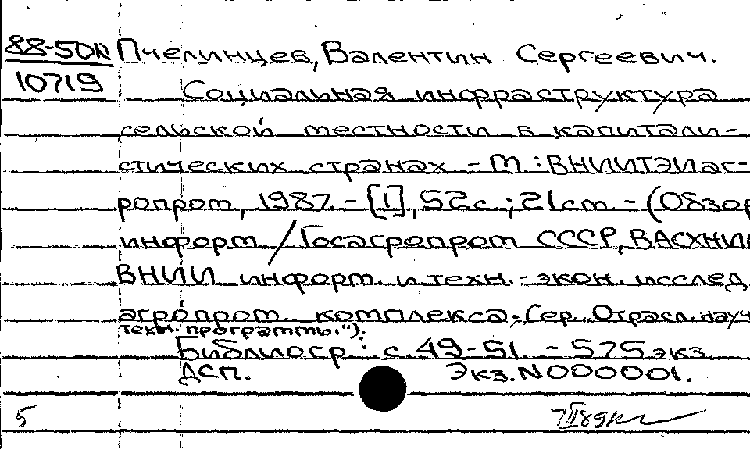 88-5ДК Пчелинцев, Валентин Сергеевич.
10719
Социальная инфраструктура
сельской местности в капитали-
стических странах. - М.: ВНИИТЭИаг-
ропром, 1987. - [1], 52 с.; 21 см. - (Обзор.
информ / Госагропром СССР, ВАСХНИЛ
ВНИИ информ. и техн.-экон. исслед.
агропром. комплекса; Сер. "Отрасл. науч.
техн. программы.").
Библиогр.: с. 49-51. - 575 экз.
ДСП. Экз. N000001.
5